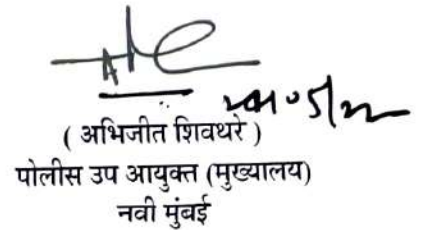 ( अभिजीत शिवथरे )
पोलीस उप आयुक्त (मुख्यालय)
नवी मुंबई